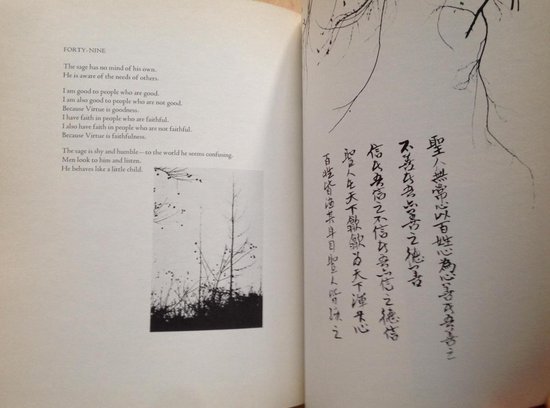 FORTY-NINE
The sage has no mind of his own.
He is aware of the needs of others.
I am good to people who are good.
I am also good to people who are not good.
Because Virtue is goodness.
I have faith in people who are faithful.
I also have faith in people who are not faithful.
Because Virtue is faithfulness.
The sage is shy and humble—to the world he seems confusing.
Men look to him and listen.
He behaves like a little child.
聖人無常心以百姓心為心善者吾善之
不善者吾亦善之德善
信者吾信之不信者吾亦信之德信
聖人在天下歙歙為天下渾其心
百姓皆注其耳目聖人皆孩之